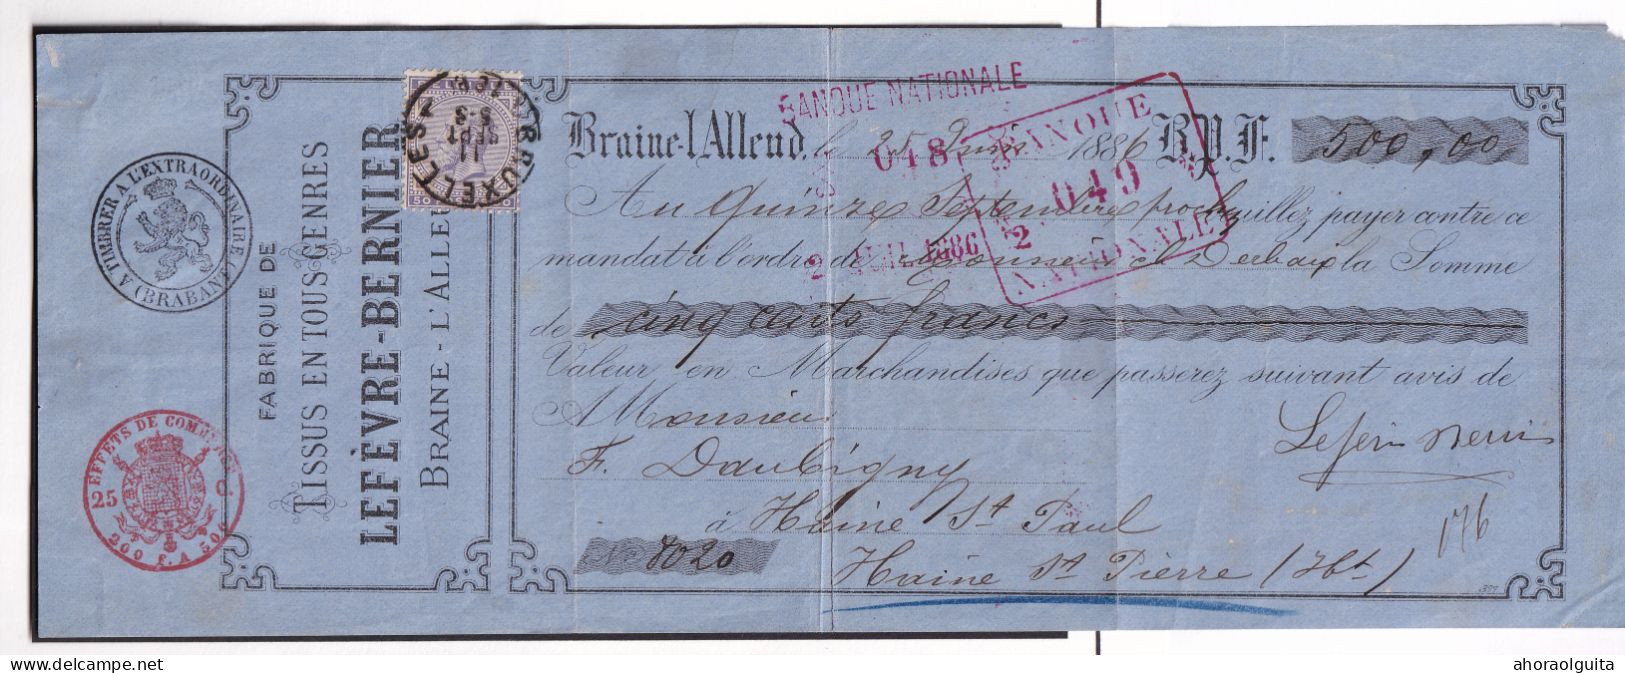 A TIMBRER A L'EXTRAORDINAIRE
(BRABANT)
EFFETS DE COMMERCE
25 C.
200 F. A 500
FABRIQUE DE
TISSUS EN TOUS GENRES
LEFÈVRE-BERNIER
BRAINE-L'ALLEU
BRUXELLES
11
SEPT
5-3
50
BANQUE NATIONALE
048
2 JUIL 1886
BANQUE
049
2
NATIONALE
Braine-l'Alleud, le 25 Juin 1886 B.P.F. 500,00
Au quinze Septembre proch veuillez payer contre ce
mandat à l'ordre de Monsieur Derbaix la Somme
de cinq cents francs
Valeur en Marchandises que passerez suivant avis de
A Monsieur
F. Daubigny
à Haine St Paul
No 8020 Haine St Pierre (Hbt)
176
ahoraolguita